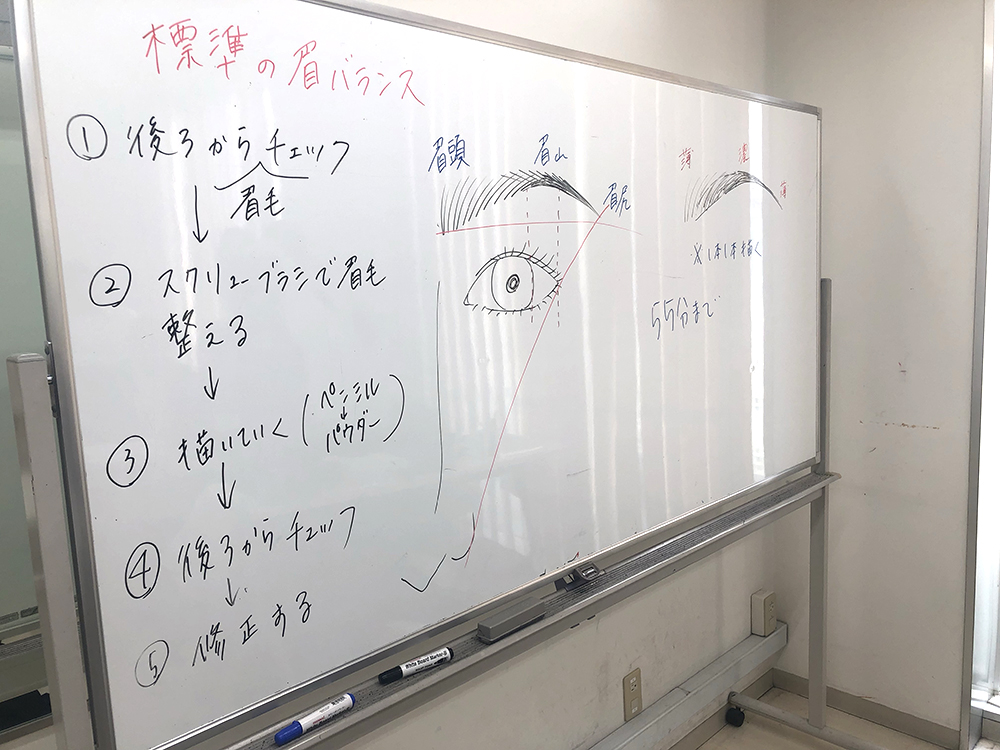 標準の眉バランス
① 後ろからチェック
眉毛
↓
② スクリューブラシで眉毛
整える
↓
③ 描いていく(ペンシル
↓
パウダー)
↓
④ 後ろからチェック
↓
⑤ 修正する
眉頭
眉山
眉尻
薄
濃
薄
※1本1本描く
55分まで
White Board Marker